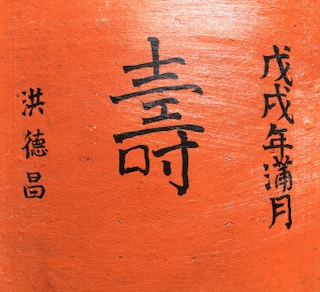 戊戌年蒲月
壽
洪德昌